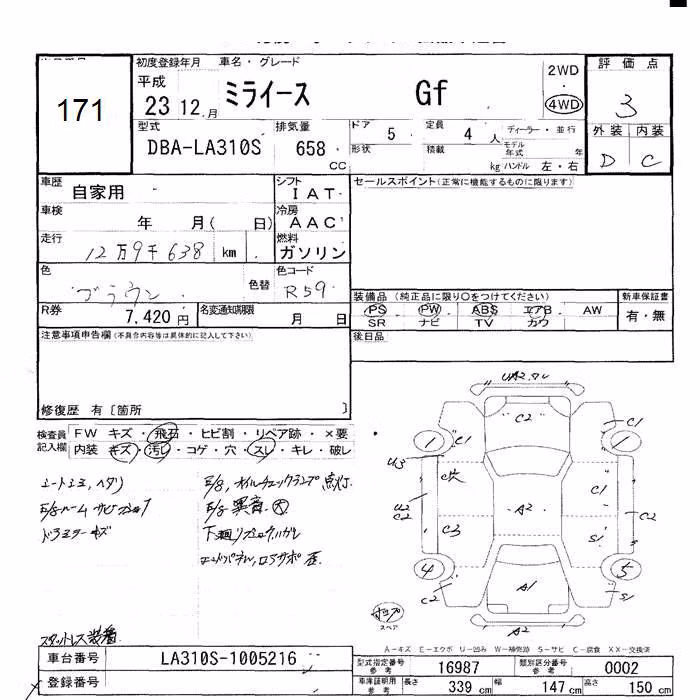 初度登録年月 車名・グレード 評価点
171
平成 23 12.月 ミライース Gf 2WD 4WD 3
型式 DBA-LA310S 排気量 658 CC
ドア 5 定員 4 人 ディーラー・並行
形状 積載 kg モデル年式 年 ハンドル 左・右
外装 内装
D C
車歴 自家用 シフト IAT
セールスポイント(正常に機能するものに限ります)
車検 年 月( 日) 冷房 AAC
走行 12万9千638 km 燃料 ガソリン
色 ブラウン 色替 色コード R59
装備品(純正品に限り○をつけてください) 新車保証書
PS PW ABS エアB AW 有・無
SR ナビ TV カワ
R券 7,420円 名変通知期限 月 日
後日品
注意事項申告欄(不具合内容等は具体的に記入して下さい)
修復歴 有〔箇所 〕
検査員記入欄 FW キズ・飛石・ヒビ割・リペア跡・×要
内装 キズ・汚レ・コゲ・穴・スレ・キレ・破レ
シートシミ、ヘタリ
E/gルーム サビ
E/g,オイルチェックランプ点灯
E/g異音 大
下廻り
エンドパネル,ロアサポ歪
スタットレス装着
UA2
C2
1 C1 C1 1
U3
C穴 C1
U2 C2 A2 C2
C3 S1
4 5
C2 A1 S1
A2
スペア
A-キズ E-エクボ U-凹み W-補修跡 S-サビ C-腐食 XX-交換済
車台番号 LA310S-1005216
登録番号
型式指定番号 参考 16987 類別区分番号 参考 0002
車庫証明用 参考 長さ 339 cm 幅 147 cm 高さ 150 cm